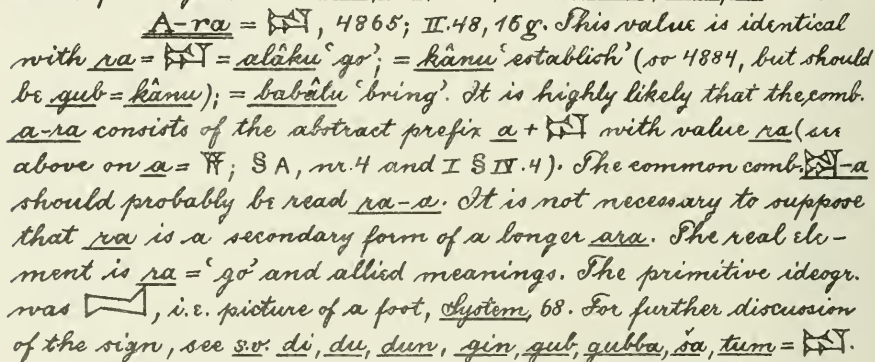 A-ra = 𒁺, 4865; II.48, 16g. This value is identical
with ra = 𒁺 = alâku 'go'; = kânu 'establish' (so 4884, but should
be gub = kânu); = babâlu 'bring'. It is highly likely that the comb.
a-ra consists of the abstract prefix a + 𒁺 with value ra (see
above on a = 𒀀; § A, nr. 4 and I § IV. 4). The common comb. 𒁺-a
should probably be read ra-a. It is not necessary to suppose
that ra is a secondary form of a longer ara. The real ele-
ment is ra = 'go' and allied meanings. The primitive ideogr.
was , i.e. picture of a foot, System, 68. For further discussion
of the sign, see s.v. di, du, dun, gin, gub, gubba, ša, tum = 𒁺.